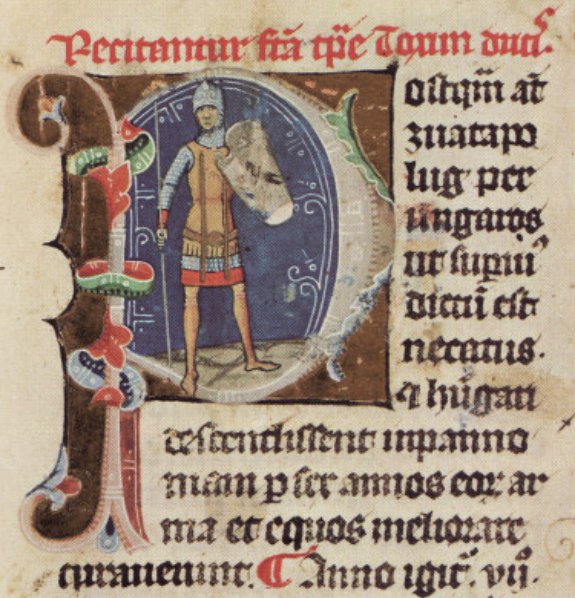 Recitantur fc̄a tp̄e Toxun ducˢ.
Postqm̄ at̄
zuatapo
lug per
ungaros
ut supiuˢ
dictū est
necatus.
⁊ hūgari
descendissent inpanno
niam ꝑ sex annos eoꝝ ar
ma et equos meliorare
curauerunt. ¶ Anno igit᷑. vij.